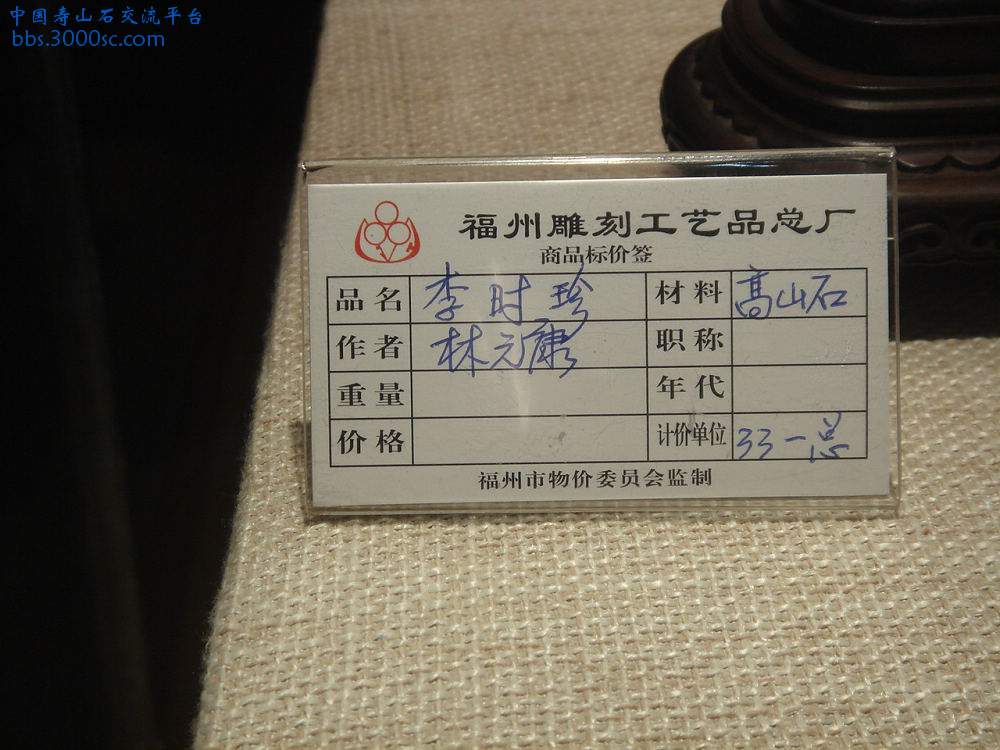 中国寿山石交流平台
bbs.3000sc.com
福州雕刻工艺品总厂
商品标价签
品名 李时珍 材料 高山石
作者 林元康 职称
重量 年代
价格 计价单位 33一总
福州市物价委员会监制